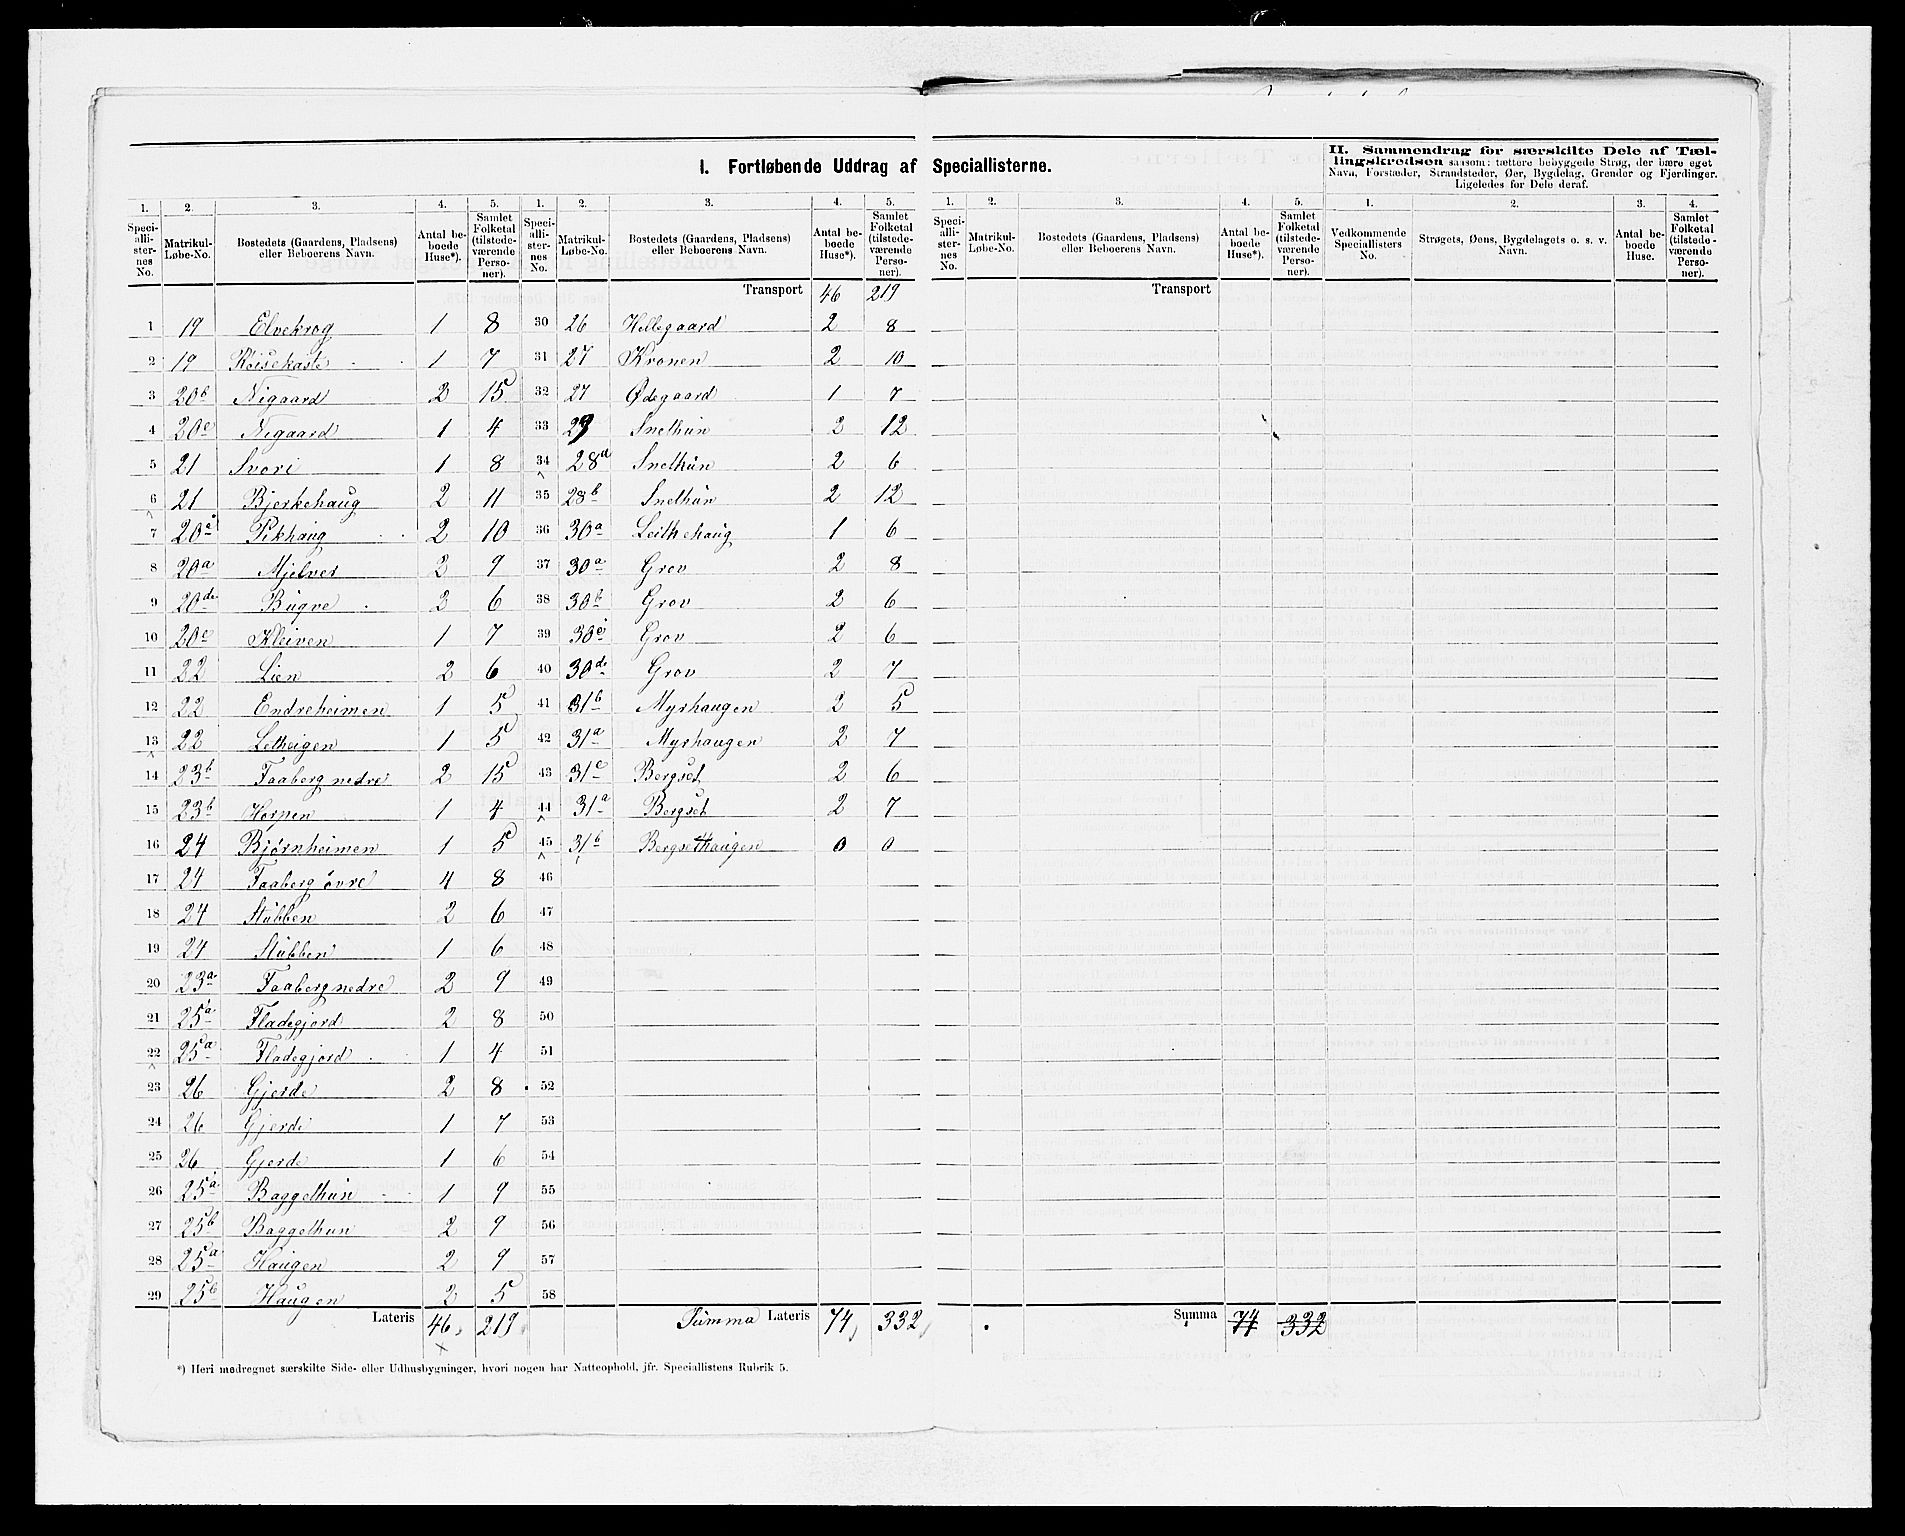 I. Fortløbende Uddrag af Speciallisterne.
II. Sammendrag for særskilte Dele af Tæl-
lingskredsen saasom: tættere bebyggede Strøg, der bære eget
Navn, Forstæder, Strandsteder, Øer, Bygdelag, Grender og Fjerdinger.
Ligeledes for Dele deraf.
1. 2. 3. 4. 5. 1. 2. 3. 4. 5. 1. 2. 3. 4. 5. 1. 2. 3. 4.
Speciallisternes No. Matrikul-Løbe-No. Bostedets (Gaardens, Pladsens) eller Beboerens Navn. Antal beboede Huse*). Samlet Folketal (tilstedeværende Personer).
Speciallisternes No. Matrikul-Løbe-No. Bostedets (Gaardens, Pladsens) eller Beboerens Navn. Antal beboede Huse*). Samlet Folketal (tilstedeværende Personer).
Speciallisternes No. Matrikul-Løbe-No. Bostedets (Gaardens, Pladsens) eller Beboerens Navn. Antal beboede Huse*). Samlet Folketal (tilstedeværende Personer).
Vedkommende Speciallisters No. Strøgets, Øens, Bygdelagets o. s. v. Navn. Antal beboede Huse. Samlet Folketal (tilstedeværende Personer).
Transport 46 219 Transport
1 19 Elvekrog 1 8 30 26 Hellegaard 2 8
2 19 Röisekaste 1 7 31 27 Kronen 2 10
3 20b Nigaard 2 15 32 27 Ødegaard 1 7
4 20c Nigaard 1 4 33 29 Snelhün 2 12
5 21 Svori 1 8 34 28a Snelhün 2 6
6 21 Bjerkehaug 2 11 35 28b Snelhün 2 12
7 20a Pikhaug 2 10 36 30a Leithehaug 1 6
8 20a Mjelver 2 9 37 30a Grov 2 8
9 20de Bügve 2 6 38 30b Grov 2 6
10 20c Kleiven 1 7 39 30c Grov 2 6
11 22 Lien 2 6 40 30d Grov 2 7
12 22 Endreheimen 1 5 41 31b Myrhaugen 2 5
13 22 Letheigen 1 5 42 31a Myrhaugen 2 7
14 23b Faaberg nedre 2 15 43 31c Bergset 2 6
15 23b Horpen 1 4 44 31a Bergset 2 7
16 24 Bjørnheimen 1 5 45 31b Bergsethaugen 0 0
17 24 Faaberg övre 4 8 46
18 24 Stübben 2 6 47
19 24 Stübben 1 6 48
20 23a Faaberg nedre 2 9 49
21 25a Fladegjord 2 8 50
22 25a Fladegjord 1 4 51
23 26 Gjerde 2 8 52
24 26 Gjerde 1 7 53
25 26 Gjerde 1 6 54
26 25a Baggethün 1 9 55
27 25b Baggethun 2 9 56
28 25a Haugen 2 9 57
29 25b Haugen 2 5 58
Lateris 46 219 Summa Lateris 74 332 Summa 74 332
*) Heri medregnet særskilte Side- eller Udhusbygninger, hvori nogen har Natteophold, jfr. Speciallistens Rubrik 5.